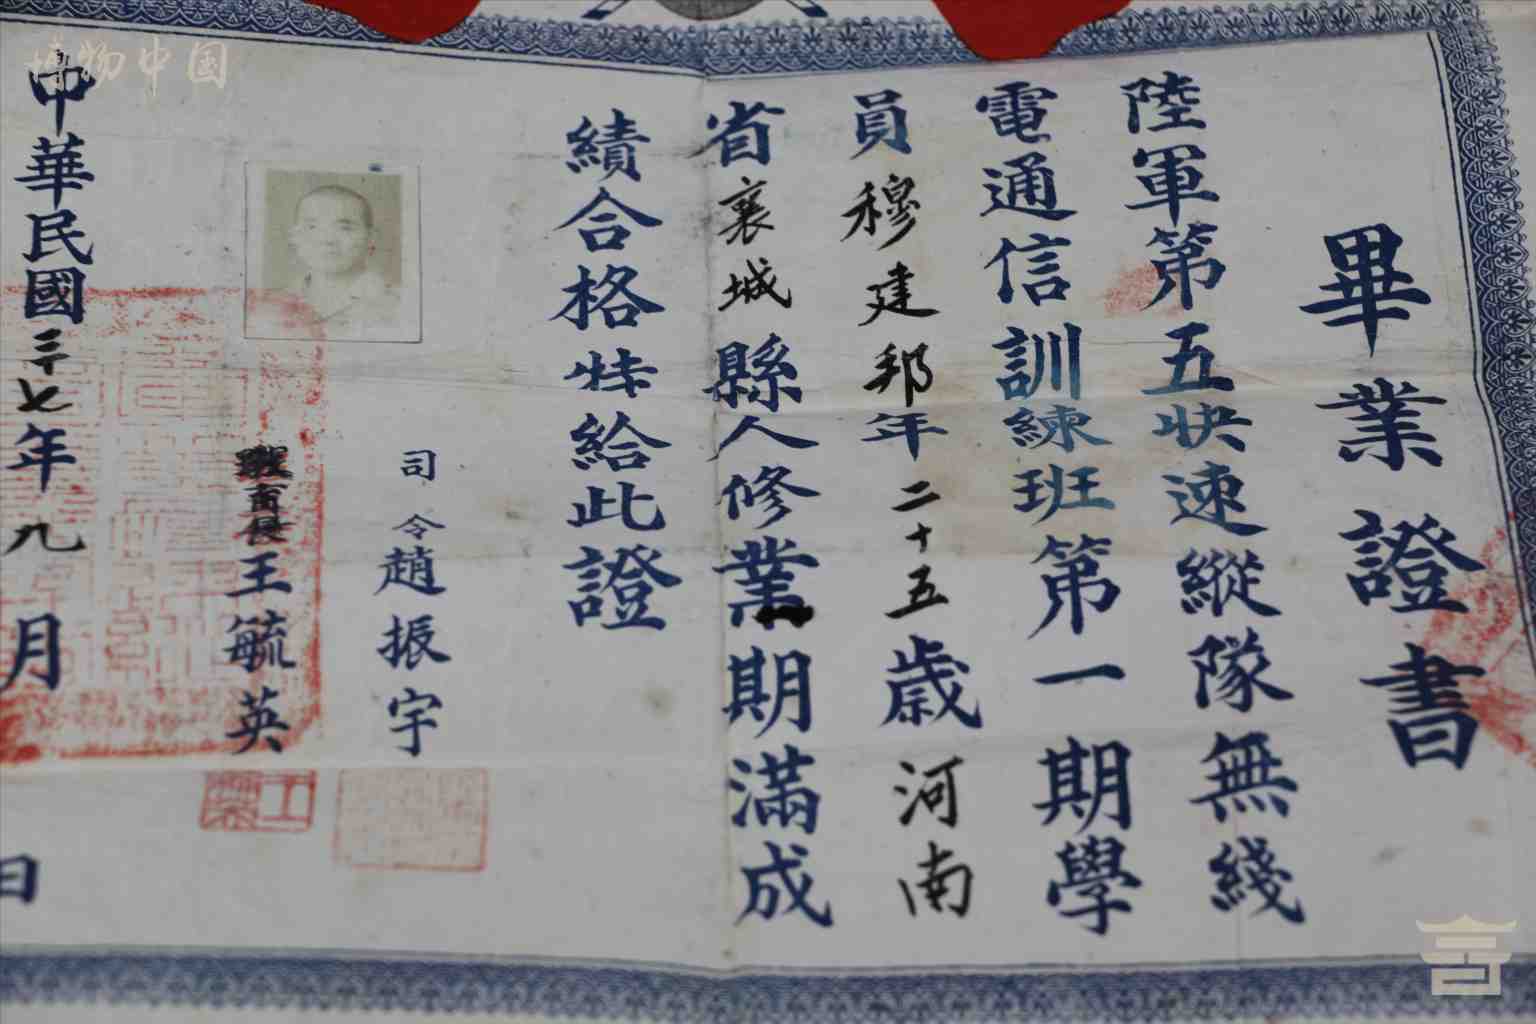 畢業證書
陸軍第五快速縱隊無綫
電通信訓練班第一期學
員穆建邦年二十五歲河南
省襄城縣人修業期滿成
績合格特給此證
司令趙振宇
王毓英
中華民國三十七年九月 日
博物中国